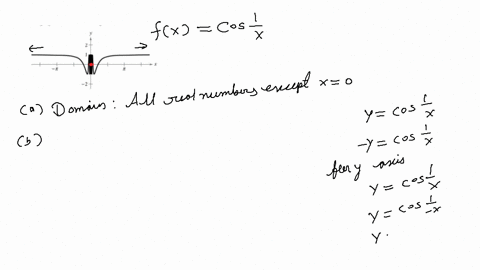 f(x) = Cos 1/x
2
-8
8
-2
(a) Domain: All real numbers except x=0
(b)
y = cos 1/x
-y = cos 1/x
y axis
y = cos 1/x
y = cos 1/-x
y .